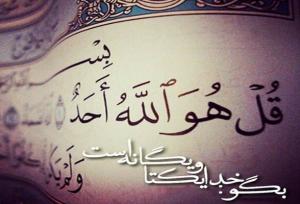 بِسْـ
قُلْ هُوَ ٱللَّهُ أَحَدٌ
وَلَمْ
بگو: خدا یکتا و یگانه است